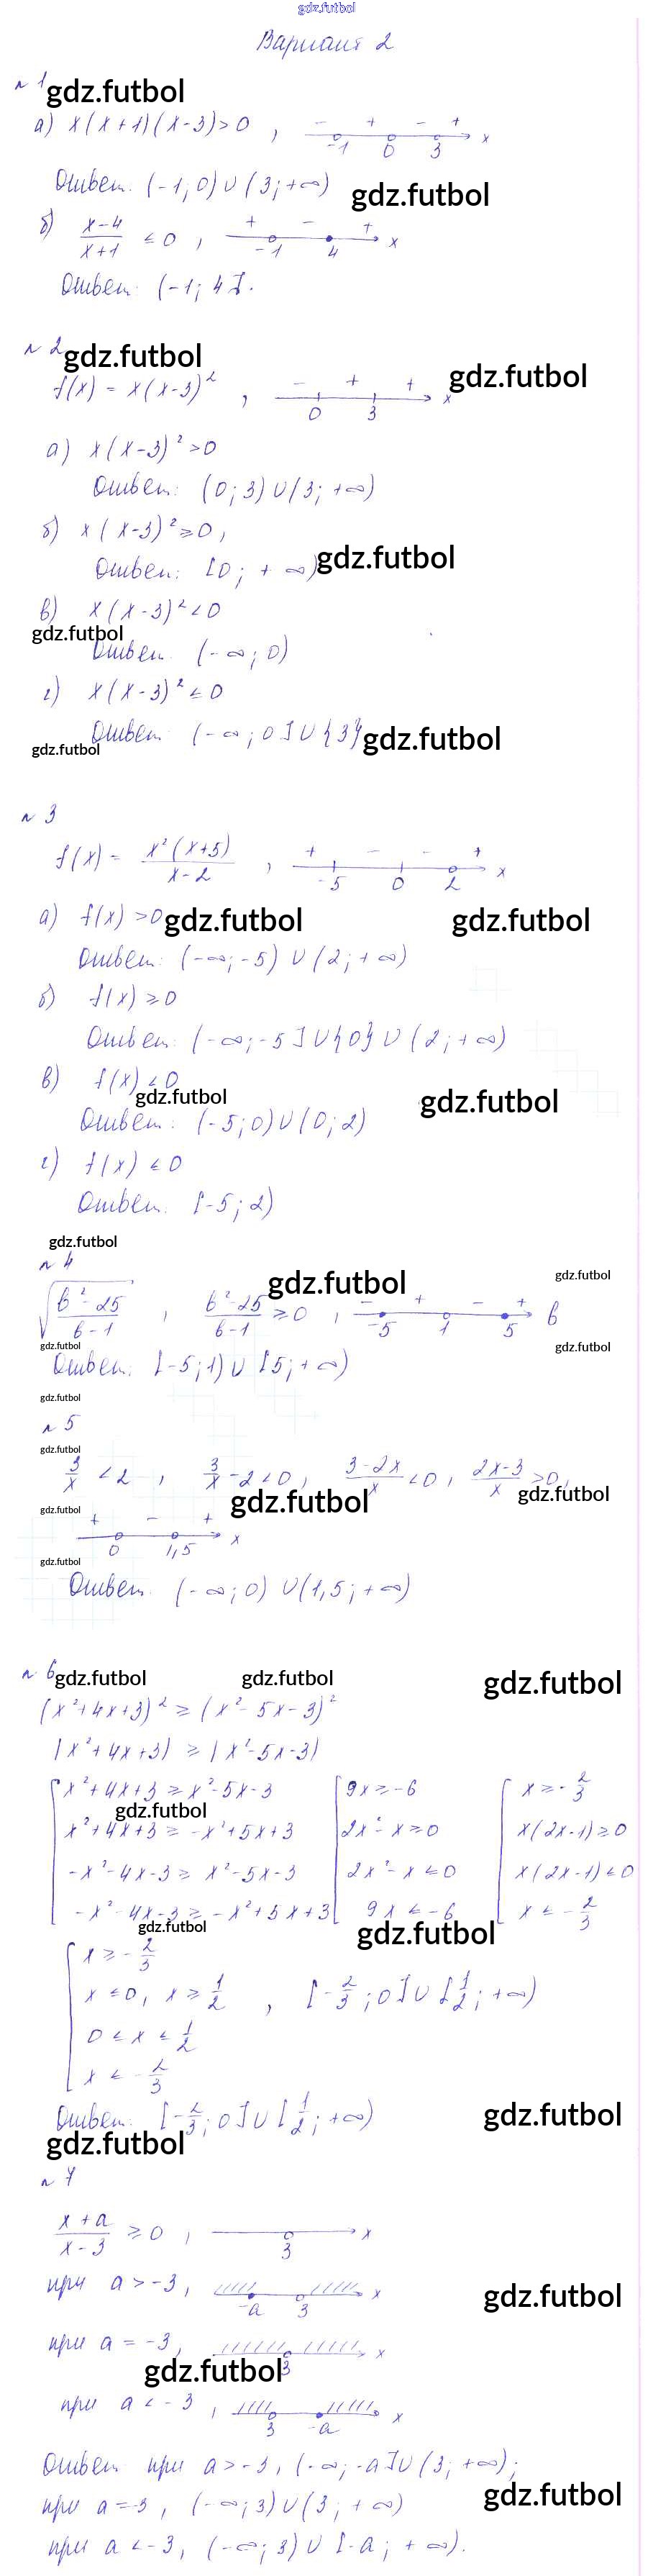 gdz.futbol
Вариант 2
№ 1 gdz.futbol
а) x(x+1)(x-3)>0 , - + - + -1 0 3 x
Ответ: (-1; 0) ∪ (3; +∞) gdz.futbol
б) (x-4)/(x+1) ≤ 0 , + - + -1 4 x
Ответ: (-1; 4].
№ 2 gdz.futbol
f(x) = x(x-3)² , - + + 0 3 x gdz.futbol
а) x(x-3)²>0
Ответ: (0; 3) ∪ (3; +∞)
б) x(x-3)²≥0,
Ответ: [0; +∞) gdz.futbol
в) x(x-3)²<0
gdz.futbol
Ответ: (-∞; 0)
г) x(x-3)²≤0
Ответ: (-∞; 0] ∪ {3} gdz.futbol
gdz.futbol
№ 3
f(x) = x²(x+5)/(x-2) , + - - + -5 0 2 x
а) f(x) >0 gdz.futbol gdz.futbol
Ответ: (-∞; -5) ∪ (2; +∞)
б) f(x) ≥0
Ответ: (-∞; -5] ∪ {0} ∪ (2; +∞)
в) f(x) <0
gdz.futbol gdz.futbol
Ответ: (-5; 0) ∪ (0; 2)
г) f(x) ≤0
Ответ: [-5; 2)
gdz.futbol
№ 4
gdz.futbol gdz.futbol
√((b²-25)/(b-1)) , (b²-25)/(b-1) ≥0 , - + - + -5 1 5 b
gdz.futbol gdz.futbol
Ответ: [-5; 1) ∪ [5; +∞)
gdz.futbol
№ 5
gdz.futbol
3/x <2 , 3/x -2<0 , (3-2x)/x <0 , (2x-3)/x >0,
gdz.futbol gdz.futbol gdz.futbol
+ - + 0 1,5 x
gdz.futbol
Ответ: (-∞; 0) ∪ (1,5; +∞)
№ 6 gdz.futbol gdz.futbol gdz.futbol
(x²+4x+3)² ≥ (x²-5x-3)²
|x²+4x+3| ≥ |x²-5x-3|
x²+4x+3 ≥ x²-5x-3 9x ≥ -6 x ≥ -2/3
gdz.futbol
x²+4x+3 ≥ -x²+5x+3 2x²-x ≥0 x(2x-1) ≥0
-x²-4x-3 ≥ x²-5x-3 2x²-x ≤0 x(2x-1) ≤0
-x²-4x-3 ≥ -x²+5x+3 9x ≤ -6 x ≤ -2/3
gdz.futbol gdz.futbol
x ≥ -2/3
x ≤0, x ≥ 1/2 , [-2/3; 0] ∪ [1/2; +∞)
0 ≤ x ≤ 1/2
x ≤ -2/3
Ответ: [-2/3; 0] ∪ [1/2; +∞) gdz.futbol
gdz.futbol
№ 7
(x+a)/(x-3) ≥0 , 3 x
при a > -3, -a 3 x gdz.futbol
при a = -3, 3 x
gdz.futbol
при a < -3 , 3 -a x
Ответ: при a > -3, (-∞; -a] ∪ (3; +∞);
при a = -3, (-∞; 3) ∪ (3; +∞) gdz.futbol
при a < -3, (-∞; 3) ∪ [-a; +∞).